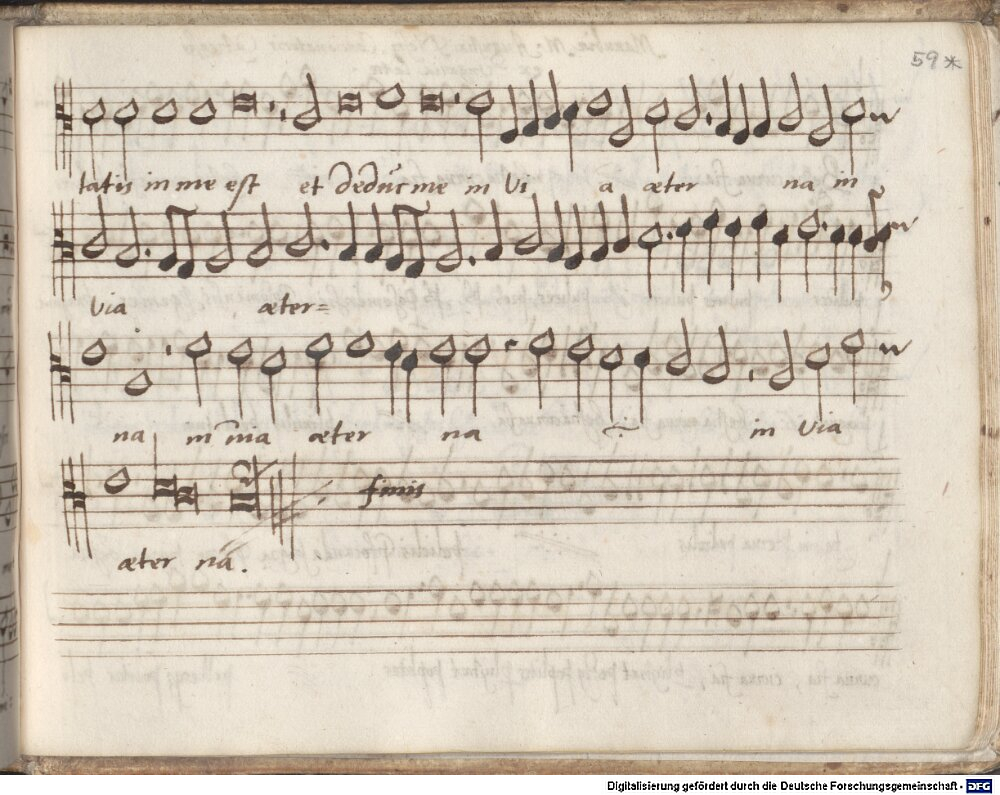 59*
tatis in me est et deduc me in Vi a æter na in
Via æter=
na in via æter na in Via
finis
æter na.
Digitalisierung gefördert durch die Deutsche Forschungsgemeinschaft - DFG